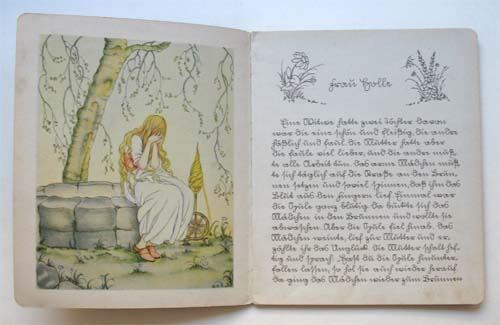 Frau Holle
Eine Witwe hatte zwei Töchter davon
war die eine schön und fleißig, die andre
häßlich und faul. Die Mutter hatte aber
die faule viel lieber, und die andre muß-
te alle Arbeit tun. Das arme Mädchen muß-
te sich täglich auf die Straße an den Brun-
nen setzen und soviel spinnen, daß ihm das
Blut aus den Fingern lief. Einmal war
die Spule ganz blutig, da bückte sich das
Mädchen in den Brunnen und wollte sie
abwaschen. Aber die Spule fiel hinab. Das
Mädchen weinte, lief zur Mutter und er-
zählte ihr das Unglück. Die Mutter schalt hef-
tig und sprach: „Hast du die Spule hinunter-
fallen lassen, so hol sie auch wieder herauf.“
Da ging das Mädchen wieder zum Brunnen